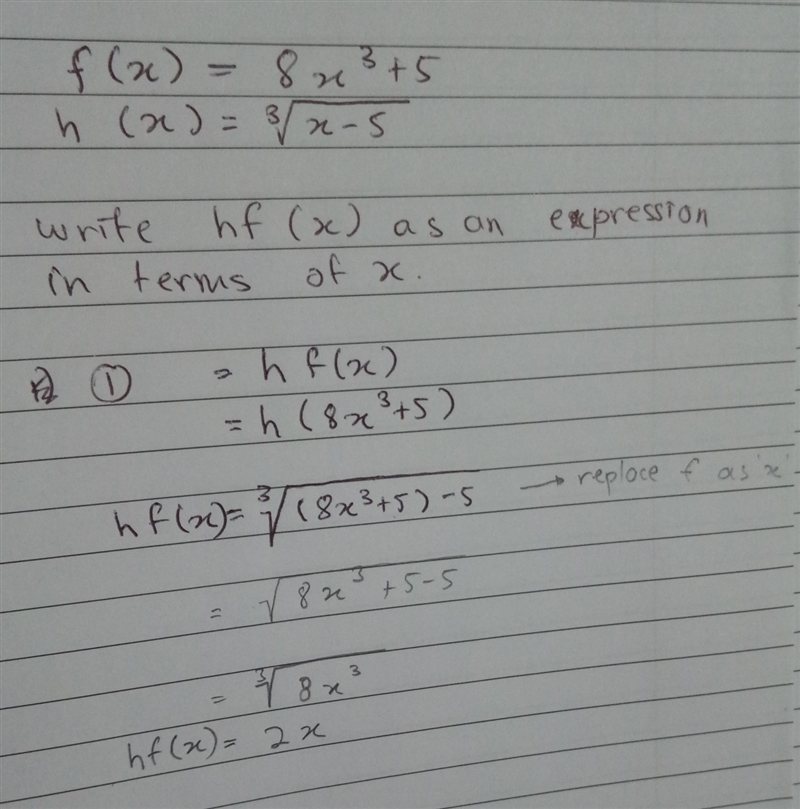 f(x) = 8x³+5
h (x) = ∛(x-5)
write hf (x) as an expression
in terms of x.
① = h f(x)
= h (8x³+5)
hf(x)= ∛((8x³+5)-5) → replace f as 'x'
= √(8x³+5-5)
= ∛(8x³)
hf(x)= 2x